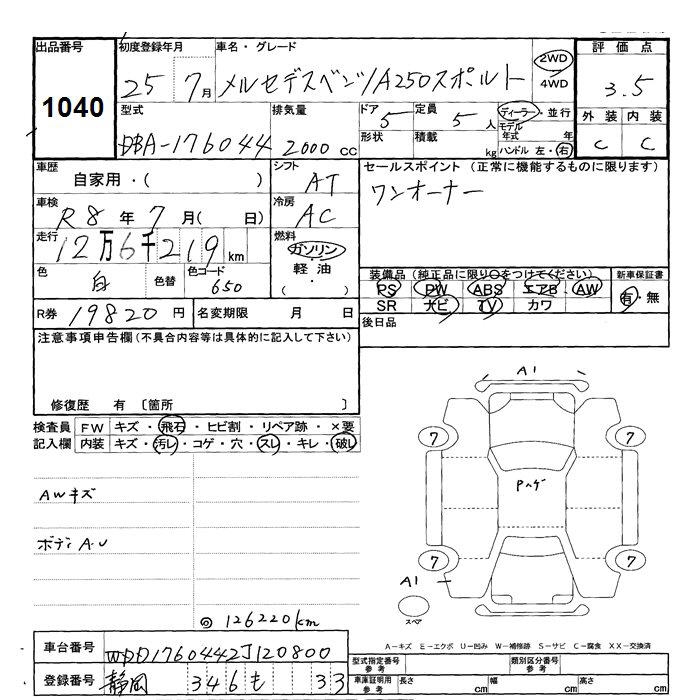 出品番号
1040
初度登録年月
25 7月
車名・グレード
メルセデスベンツ/A250スポルト
2WD
4WD
評価点
3.5
外装 内装
C C
型式
DBA-176044
排気量
2000 cc
ドア 5
形状
定員 5 人
積載 kg
ディーラー・並行
モデル年式 年
ハンドル 左・右
車歴
自家用・( )
シフト
AT
セールスポイント (正常に機能するものに限ります)
ワンオーナー
車検
R8年7月( 日)
冷房
AC
走行
12万6千219km
燃料
ガソリン
軽油
( ・ )
色
白
色替
色コード
650
装備品(純正品に限り○をつけてください)
PS PW ABS エアB AW
SR ナビ TV カワ
新車保証書
有・無
R券 19820円
名変期限 月 日
後日品
注意事項申告欄(不具合内容等は具体的に記入して下さい)
修復歴 有 〔箇所 〕
検査員記入欄
FW キズ・飛石・ヒビ割・リペア跡・×要
内装 キズ・汚レ・コゲ・穴・スレ・キレ・破レ
AWキズ
ボディA.U
◎126220km
A1
7 7
Pハゲ
7 7
A1
スペア
A-キズ E-エクボ U-凹み W-補修跡 S-サビ C-腐食 XX-交換済
車台番号
WDD1760442J120800
登録番号
静岡 346 も 33
型式指定番号 参考
類別区分番号 参考
車庫証明用 参考
長さ cm
幅 cm
高さ cm